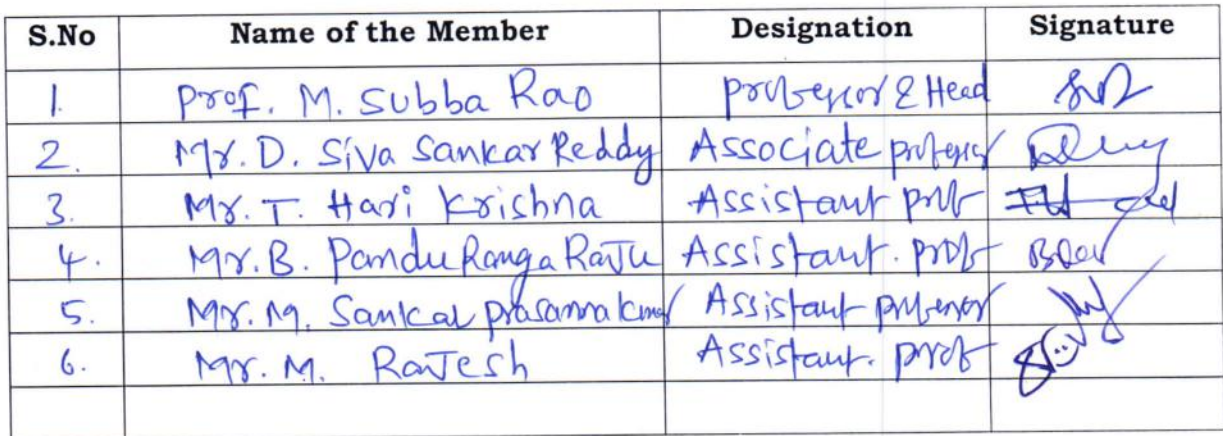 S.No Name of the Member Designation Signature
1. Prof. M. Subba Rao professor & Head
2. Mr. D. Siva Sankar Reddy Associate professor
3. Mr. T. Hari Krishna Assistant prof
4. Mr. B. Pandu Ranga Raju Assistant. prof
5. Mr. M. Sankar prasanna kumar Assistant professor
6. Mr. M. Rajesh Assistant. prof